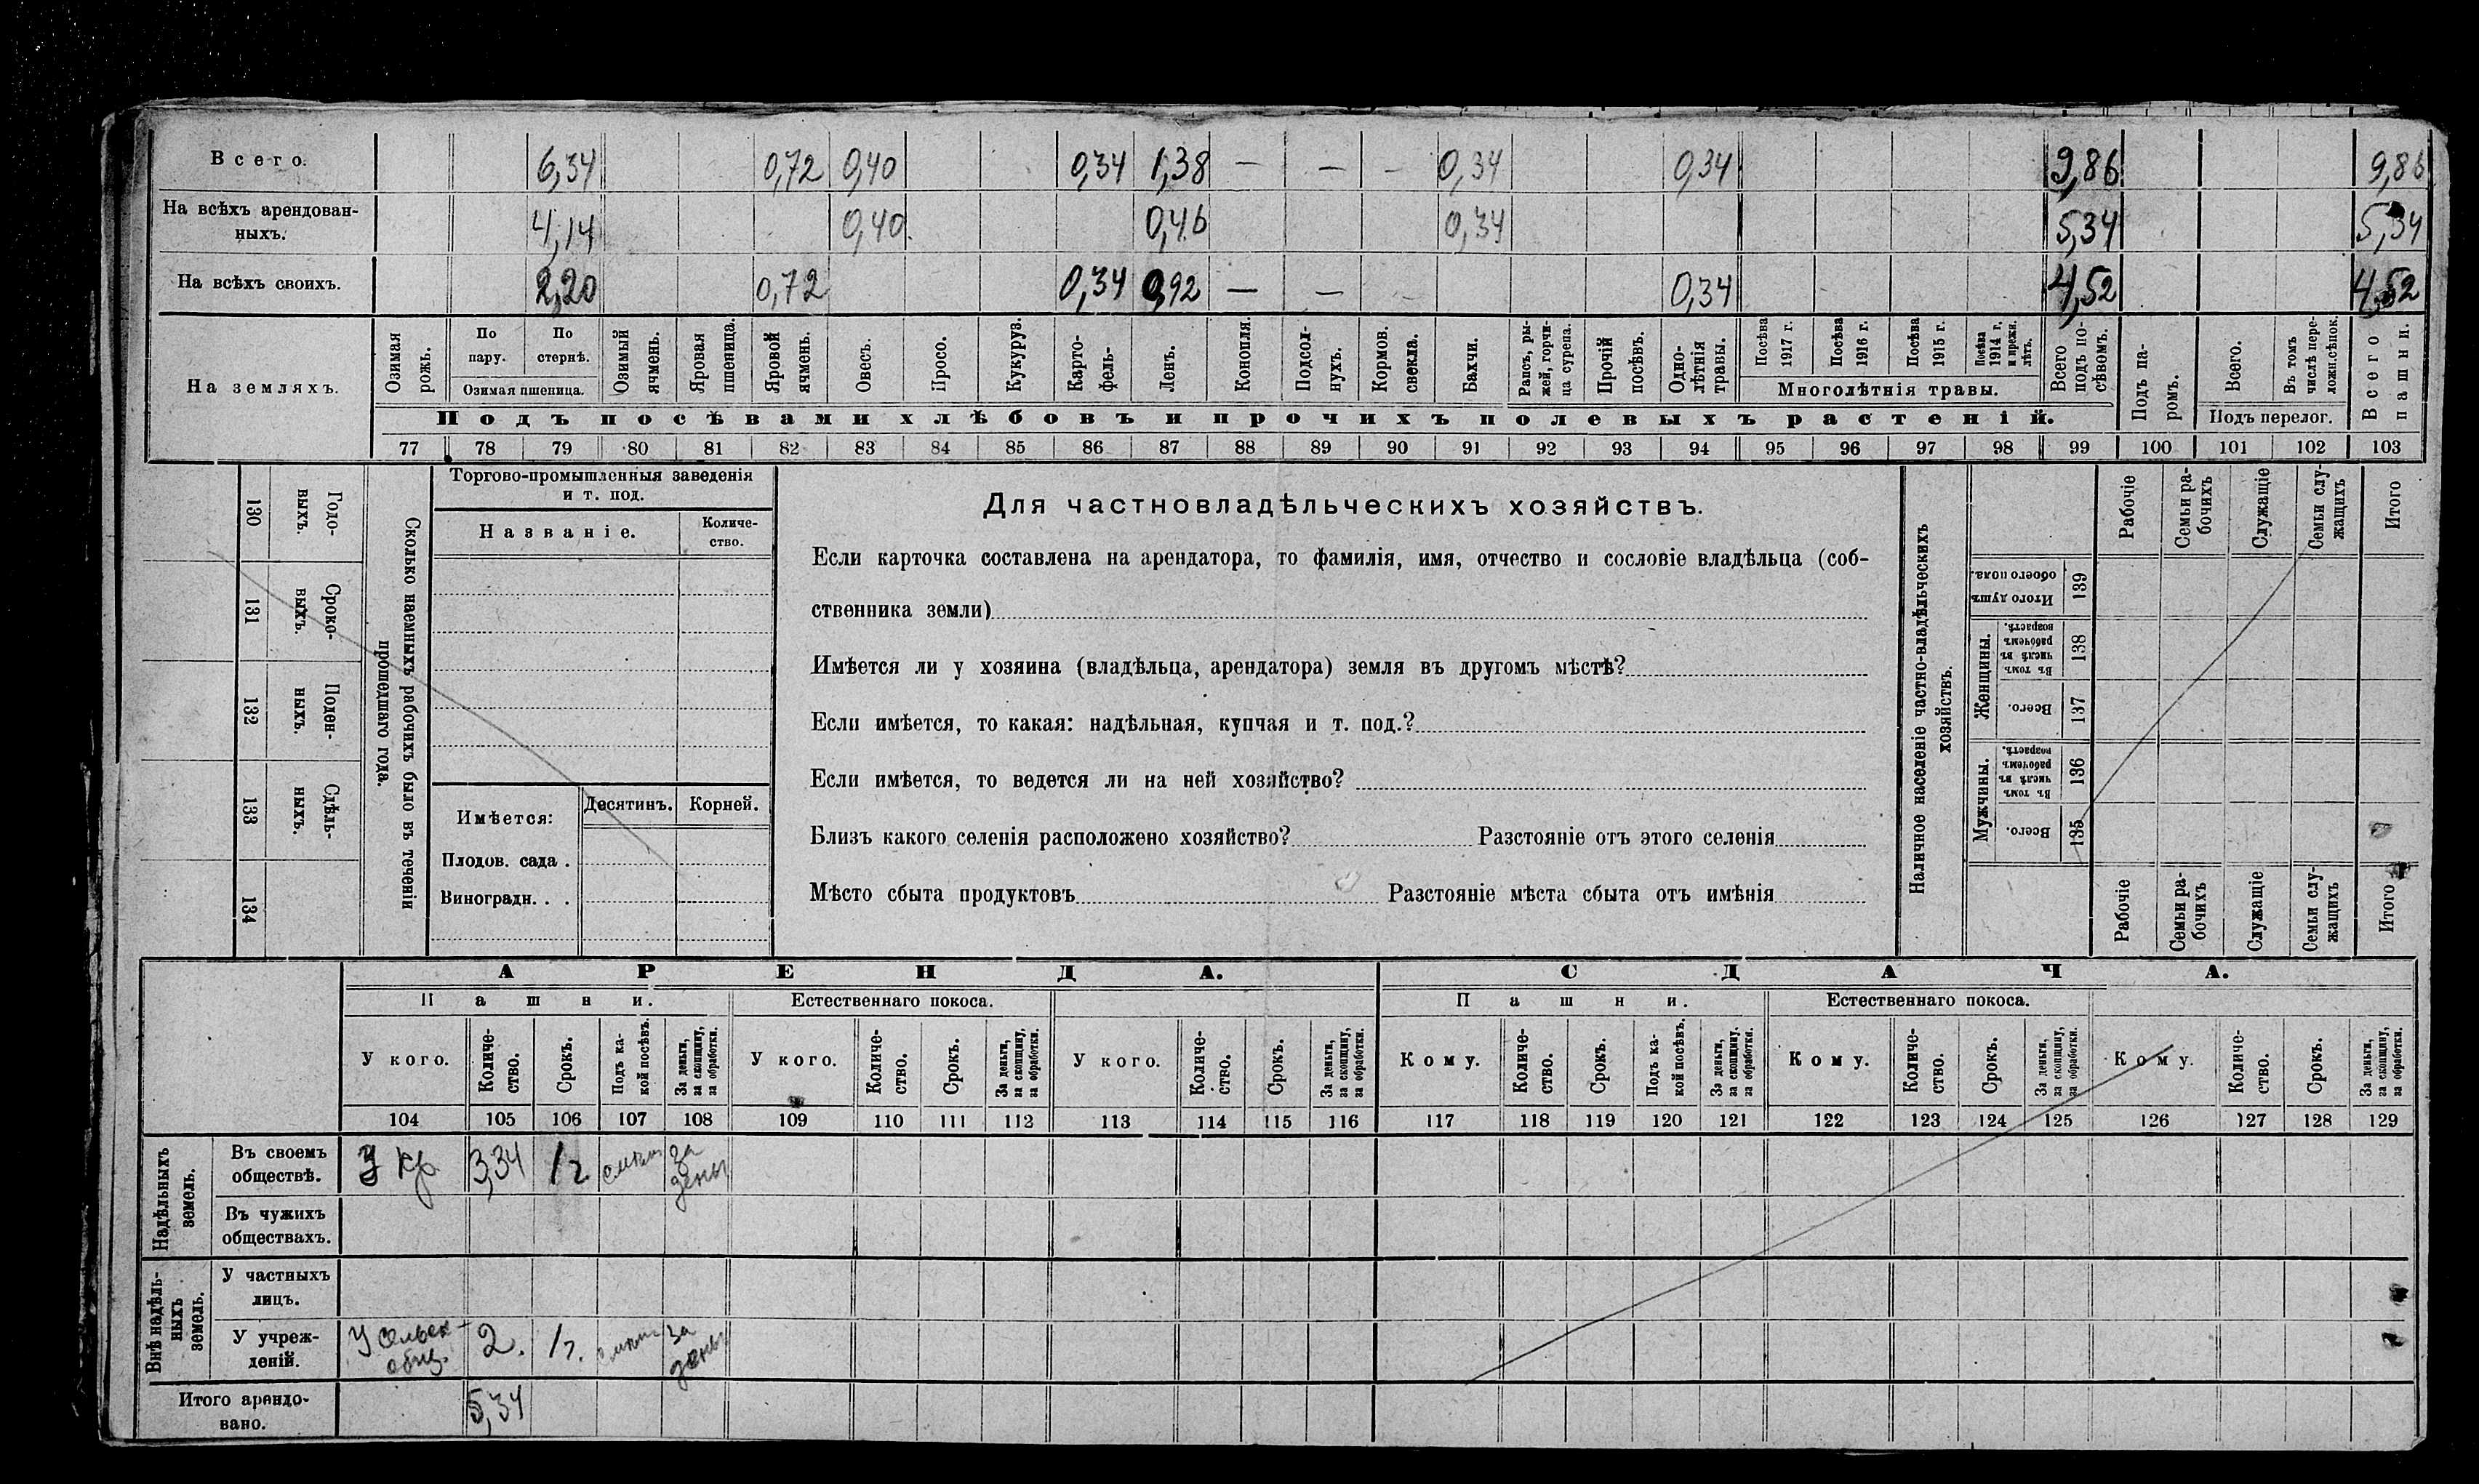 Всего. 6,34 0,72 0,40 0,34 1,38 — — - 0,34 0,34 9,86 9,86
На всѣхъ арендован-
ныхъ. 4,14 0,40 0,46 0,34 5,34 5,34
На всѣхъ своихъ. 2,20 0,72 0,34 0,92 — — - 0,34 4,52 4,52
На земляхъ.
Озимая рожь.
По пару.
По стернѣ.
Озимая пшеница.
Озимый ячмень.
Яровая пшеница.
Яровой ячмень.
Овесъ.
Просо.
Кукуруз.
Карто-
фель-
Ленъ.
Конопля.
Подсол-
нухъ.
Кормов.
свекла.
Бахчи.
Рапсъ, ры-
жей, горчи-
ца сурепа.
Прочій
посѣвъ.
Одно-
лѣтнія
травы.
Посѣва
1917 г.
Посѣва
1916 г.
Посѣва
1915 г.
Посѣва
1914 г.
и прежн.
лѣтъ.
Многолѣтнія травы.
Всего
подъ по-
сѣвомъ.
Подъ па-
ромъ.
Всего.
Въ томъ
числѣ пере-
ложн.сѣнок.
Подъ перелог.
Всего
пашни.
Подъ посѣвами хлѣбовъ и прочихъ полевыхъ растеній.
77 78 79 80 81 82 83 84 85 86 87 88 89 90 91 92 93 94 95 96 97 98 99 100 101 102 103
Сколько наемныхъ рабочихъ было въ теченіи
прошедшаго года.
Годо-
выхъ.
130
Сроко-
выхъ.
131
Поден-
ныхъ.
132
Сдѣль-
ныхъ.
133
134
Торгово-промышленныя заведенія
и т. под.
Названіе.
Количе-
ство.
Имѣется:
Десятинъ.
Корней.
Плодов. сада .
Виноградн. . .
Для частновладѣльческихъ хозяйствъ.
Если карточка составлена на арендатора, то фамилія, имя, отчество и сословіе владѣльца (соб-
ственника земли)
Имѣется ли у хозяина (владѣльца, арендатора) земля въ другомъ мѣстѣ?
Если имѣется, то какая: надѣльная, купчая и т. под.?
Если имѣется, то ведется ли на ней хозяйство?
Близъ какого селенія расположено хозяйство? Разстояніе отъ этого селенія
Мѣсто сбыта продуктовъ Разстояніе мѣста сбыта отъ имѣнія
Наличное населеніе частно-владѣльческихъ
хозяйствъ.
Рабочіе
Семьи ра-
бочихъ
Служащіе
Семьи слу-
жащихъ
Итого
Итого душъ
обоего пола.
139
Женщины.
Въ томъ
числѣ въ
рабочемъ
возрастѣ.
138
Всего.
137
Мужчины.
Въ томъ
числѣ въ
рабочемъ
возрастѣ.
136
Всего.
135
Рабочіе
Семьи ра-
бочихъ
Служащіе
Семьи слу-
жащихъ
Итого
АРЕНДА.
СДАЧА.
Пашни.
Естественнаго покоса.
Пашни.
Естественнаго покоса.
У кого.
Количе-
ство.
Срокъ.
Подъ ка-
кой посѣвъ.
За деньги,
за скопщину,
за обработки.
У кого.
Количе-
ство.
Срокъ.
За деньги,
за скопщину,
за обработки.
У кого.
Количе-
ство.
Срокъ.
За деньги,
за скопщину,
за обработки.
Кому.
Количе-
ство.
Срокъ.
Подъ ка-
кой посѣвъ.
За деньги,
за скопщину,
за обработки.
Кому.
Количе-
ство.
Срокъ.
За деньги,
за скопщину,
за обработки.
Кому.
Количе-
ство.
Срокъ.
За деньги,
за скопщину,
за обработки.
104 105 106 107 108 109 110 111 112 113 114 115 116 117 118 119 120 121 122 123 124 125 126 127 128 129
Надѣльныхъ
земель.
Въ своемъ
обществѣ.
У кр. 3,34 1 г. за
Въ чужихъ
обществахъ.
Внѣ надѣль-
ныхъ
земель.
У частныхъ
лицъ.
У учреж-
деній.
У Сельск-
общ. 2. 1 г. за
Итого арендо-
вано. 5,34